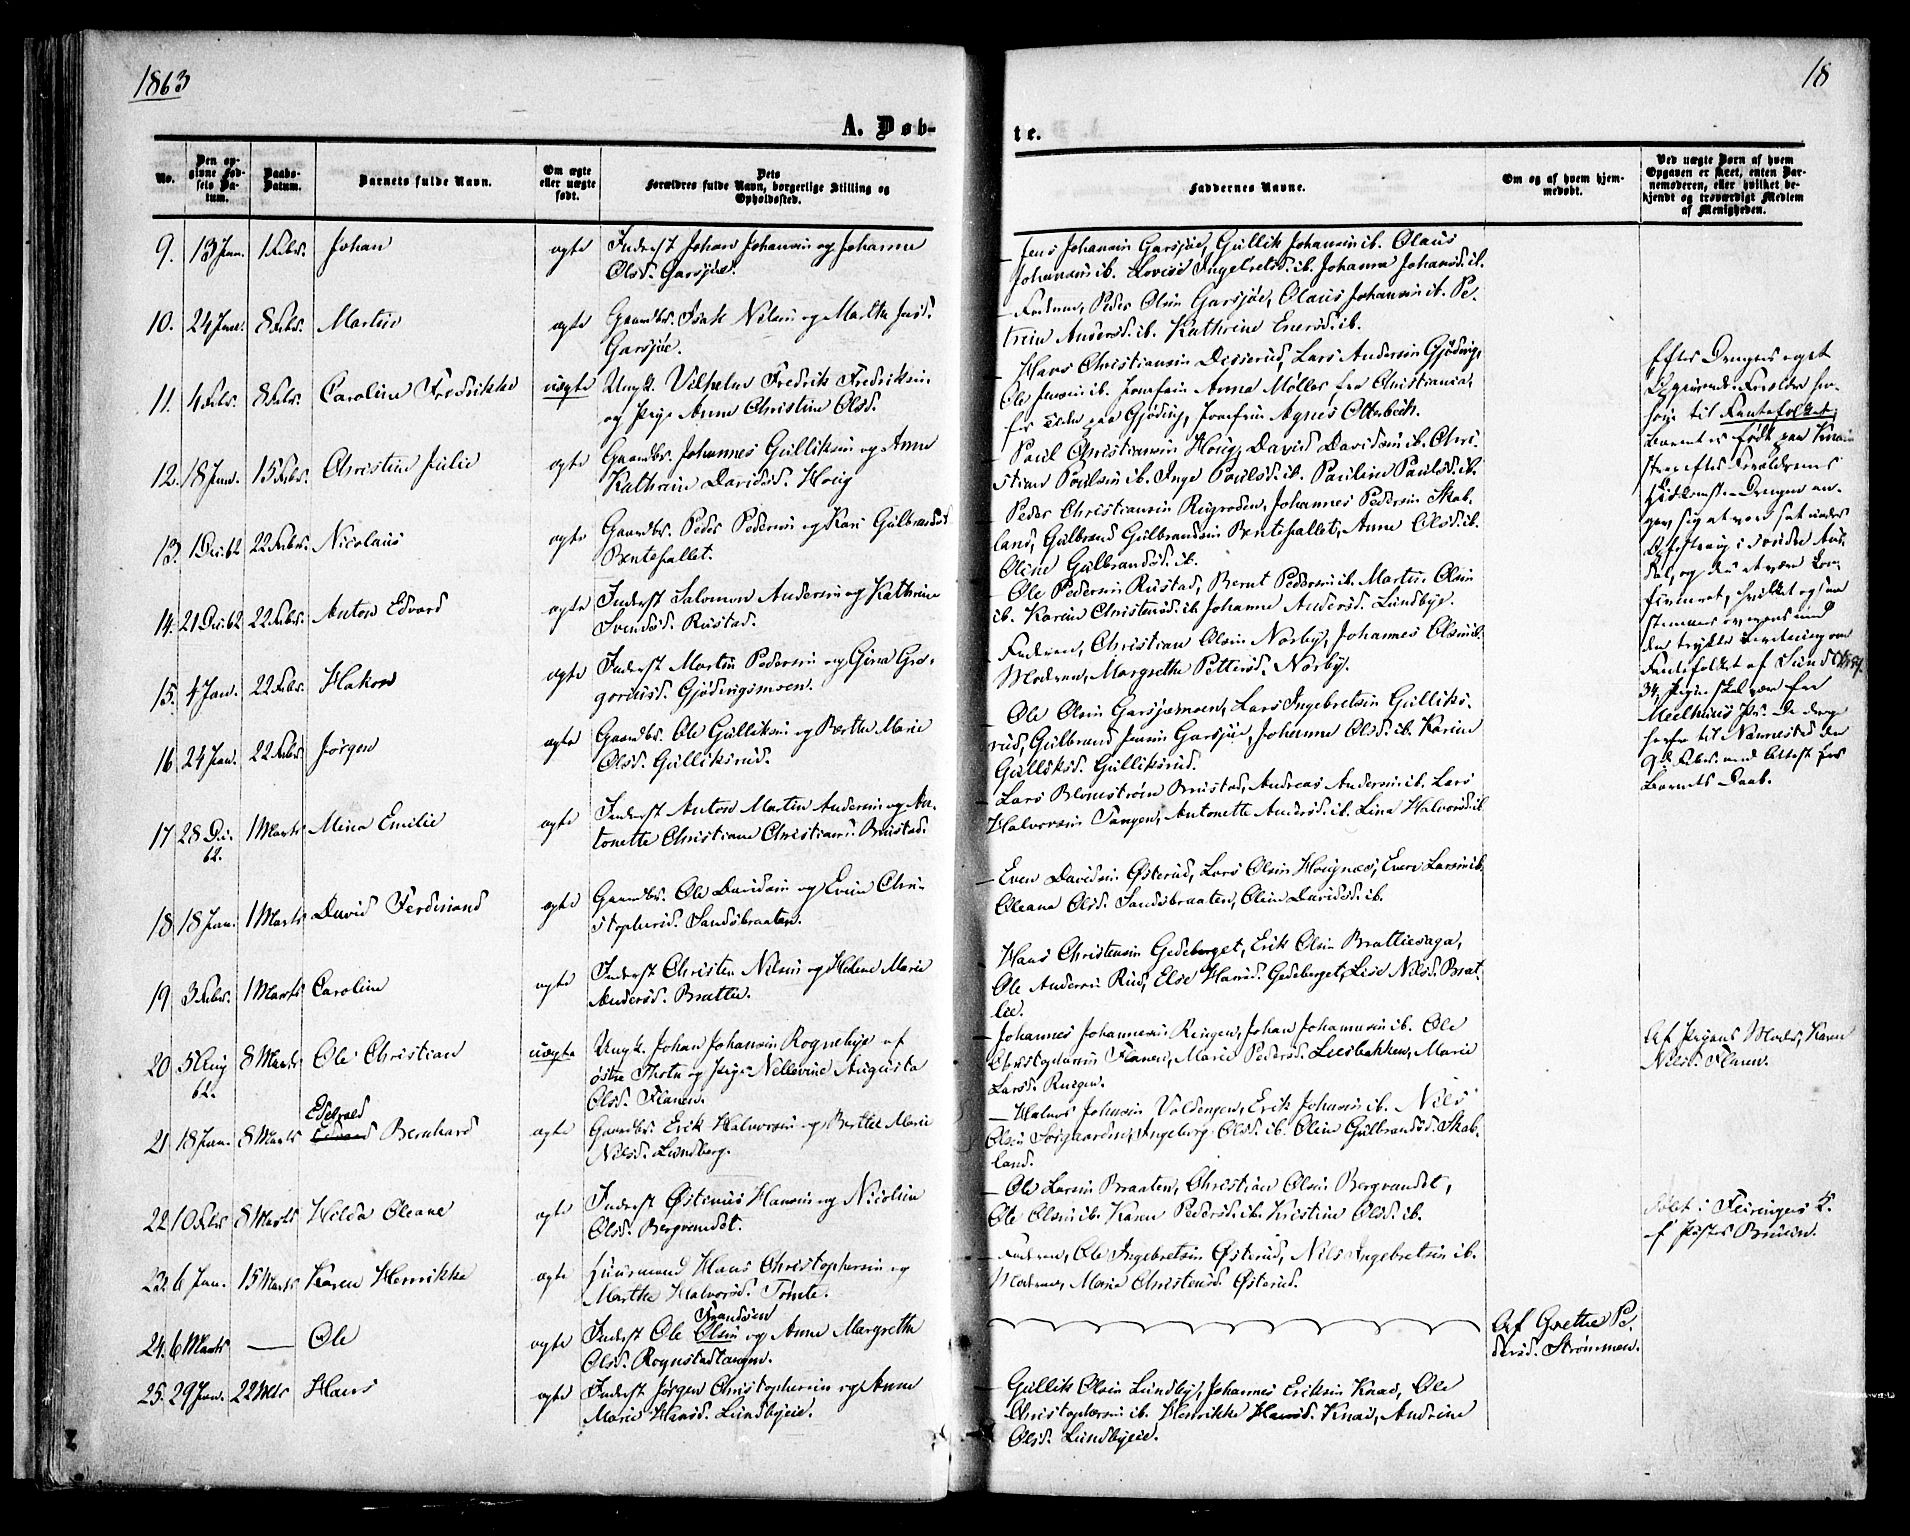 1863
18
A. Døb-
te.
No.
Den op-
givne Fød-
sels Da-
tum.
Daabs-
Datum.
Barnets fulde Navn.
Om ægte
eller uægte
født.
Dets
Forældres fulde Navn, borgerlige Stilling og
Opholdssted.
Faddernes Navne.
Om og af hvem hjem-
medøbt.
Ved uægte Børn af hvem
Opgaven er skeet, enten Bar-
nemoderen, eller hvilket be-
kjendt og troværdigt Medlem
af Menigheden.
9. 13 Jan. 1 Febr. Johan ægte Inderst Johan Johansen og Johanne
Olsd. Garsjøe.
Jens Johansen Garsjøe, Gullik Johansen ib. Olaus
Johansen ib. Lovise Ingebretsd. ib. Johanne Johansd. ib.
10. 24 Jan. 8 Febr. Martin ægte Gaardbr. Isak Nilsen og Marthe Jensd.
Garsjøe.
Faderen, Peder Olsen Garsjøe, Olaus Johansen ib. Pe-
trine Andersd. ib. Kathrine Enersd. ib.
11. 4 Febr. 8 Febr. Caroline Fredrikke uægte Ungk. Vilhelm Fredrik Fredriksen
og Pige Anne Christine Olsd.
Hans Christiansen Disserud, Lars Andersen Gjødvig,
Ole Jensen ib. Jomfru Anna Møller fra Christiania,
for Tiden paa Gjødvig, Jomfru Agnes Otterbech.
12. 18 Jan. 15 Febr. Christine Julie ægte Gaardbr. Johannes Gulliksen og Anne
Kathrine Davidsd. Houg
Paul Christiansen Houg, David Davidsen ib. Chri-
stian Poulsen ib. Inge Poulsd. ib. Pauline Paulsd. ib.
13. 1 Dec. 62 22 Febr. Nicolaus ægte Gaardbr. Peder Pedersen og Kari Gulbrandsd.
Bentefallet.
Peder Christiansen Rugroden, Johannes Pedersen Skab-
land, Gulbrand Gulbrandsen Bentefallet, Anne Olsd. ib.
Oline Gulbrandsd. ib.
14. 21 Dec. 62 22 Febr. Anton Edvard ægte Inderst Salomon Andersen og Kathrine
Svendsd. Rustad.
Ole Pedersen Rustad, Bernt Pedersen ib. Martin Olsen
ib. Karen Christensd. ib. Johanne Andersd. Lundbye.
15. 4 Jan. 22 Febr. Hakon ægte Inderst Martin Pedersen og Gina Gre-
goriusd. Gjødvigsmoen.
Faderen, Christian Olsen Norby, Johannes Olsen ib.
Moderen, Margrethe Pettersd. Norby.
16 24 Jan. 22 Febr. Jørgen ægte Gaardbr. Ole Gulliksen og Berthe Marie
Olsd. Gulliksrud.
Ole Olsen Garsjømoen, Lars Ingebretsen Gulliks-
rud, Gulbrand Jensen Garsjøe, Johanne Olsd. ib. Karine
Gulliksd. Gulliksrud.
17 28 Dec. 62. 1 Marts Mina Emilie ægte Inderst Anton Martin Andersen og An-
tonette Christiane Christiansd. Brustad.
Lars Blomstrøm Brustad, Andreas Andersen ib. Lars
Halvorsen Tangen, Antonette Andersd. ib. Lina Halvorsd. ib.
18 18 Jan. 1 Marts David Ferdinand ægte Gaardbr. Ole Davidsen og Evine Chri-
stophersd. Sandsbraaten.
Even Davidsen Østerud, Lars Olsen Hougnæs, Even Larsen ib.
Oleana Olsd. Sandsbraaten, Oline Davidsd. ib.
19 3 Febr. 1 Marts Caroline ægte Inderst Christen Nilsen og Helene Marie
Andersd. Brattie.
Hans Christensen Gedeberget, Erik Olsen Brattiesaga,
Ole Andersen Rud, Else Hansd. Gedeberget, Lise Nilsd. Brat-
lie.
20 5 Aug 62. 8 Marts Ole Christian uægte Ungk. Johan Johansen Rognehye af
østre Thoten og Pige Nellevine Augusta
Olsd. Flanen.
Johannes Johannesen Ringen, Johan Johannesen ib. Ole
Christophersen Flanen, Marie Pedersd. Liesbakken, Marie
Larsd. Ringen.
Af Pigens Moder, Karen
Nilsd. Flanen.
21 18 Jan. 8 Marts Edevald
Edvard Bernhard ægte Gaardbr. Erik Halvorsen og Berthe Marie
Nilsd. Lundberg.
Halvor Johnsen Voldengen, Erik Johnsen ib. Nils
Olsen Sørgaarden, Ingeborg Olsd. ib. Oline Gulbrandsd. Skab-
land.
22 10 Febr 8 Marts Hilda Oleane ægte Inderst Østinius Hansen og Nicoline
Olsd. Bergvandet.
Ole Larsen Braaten, Christian Olsen Bergvandet,
Ole Olsen ib. Karen Pedersd. ib. Kristine Olsd. ib.
Døbt i Feiringens K.
af Pastor Bruun.
23. 6 Jan. 15 Marts Karen Henrikke ægte Huusmand Hans Christophersen og
Marthe Halvorsd. Tømte.
Faderen, Ole Ingebretsen Østerud, Nils Ingebretsen ib.
Moderen, Maria Christensd. Østerud.
24. 6 Marts — Ole ægte Inderst Ole Frandsen
Olsen og Anne Margrethe
Olsd. Rognstadtangen.
Af Grethe Pe-
dersd. Strømmen.
25. 29 Jan. 22 Mts Hans ægte Inderst Jørgen Christophersen og Anne
Marie Hansd. Lundbyeie.
Gullik Olsen Lundby, Johannes Eriksen Knai, Ole
Christophersen ib. Henrikke Hansd. Knai, Andrine
Olsd. Lundbyeie.
Efter Drengens eget
Opgivende Forældre hen-
høre til Fantefolket;
Barnet er født paa
efter Forældrenes
Drengen an-
gav sig at være sat under
Opfostring i
dal, og
firmeret, hvilket ogsaa
stemmer overeens med
den trykte Beretning om
Fantefolket af Sundt
34, Pigen skal være fra
Meelhuus Pr. De drog
herfra til Nannestad den
9d. Febr. med Attest for
Barnets Daab.